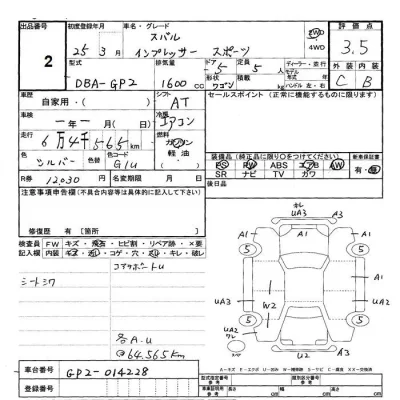 出品番号 初度登録年月 車名・グレード 2WD 評価点
2 25年3月 スバル インプレッサー スポーツ 4WD 3.5
型式 排気量 ドア 定員 ディーラー・並行 外装 内装
DBA-GP2 1600cc 5 5人 モデル年式 年
形状 ワゴン ハンドル 左・右 C B
車歴 シフト セールスポイント(正常に機能するものに限ります)
自家用・( ) AT
車検 冷房
一年一月 エアコン
走行 燃料
6万4千565km ガソリン
色 色替 色コード 軽油
シルバー G1U 装備品(純正品に限り○をつけてください) 新車保証書
PS PW ABS エアB AW 有・無
R券 12,030 名変期限 月 日 SR ナビ TV カワ
注意事項申告欄(不具合内容は具体的に記入して下さい) 後日品
修復歴 有( )箇所
検査員 FW キズ・飛石・ヒビ割・リペア跡・×要
記入欄 内装 キズ・汚れ・コゲ・穴・ボルト穴・キレ・破レ
コアサポートU
シートシワ
各A.U
@64.565km
車台番号 GP2-014228
登録番号
ホレ
UA3 A3
A1 A1
5 5
A1
UA3 W2 A3
5 5
UA2 ワレ A1
U2 A3
スペア
A-キズ E-エクボ U-凹み W-補修跡 S-サビ C-腐食 XX-交換済
型式指定番号 類別区分番号
参考 参考
車両証明参考 長さ cm 幅 cm 高さ cm